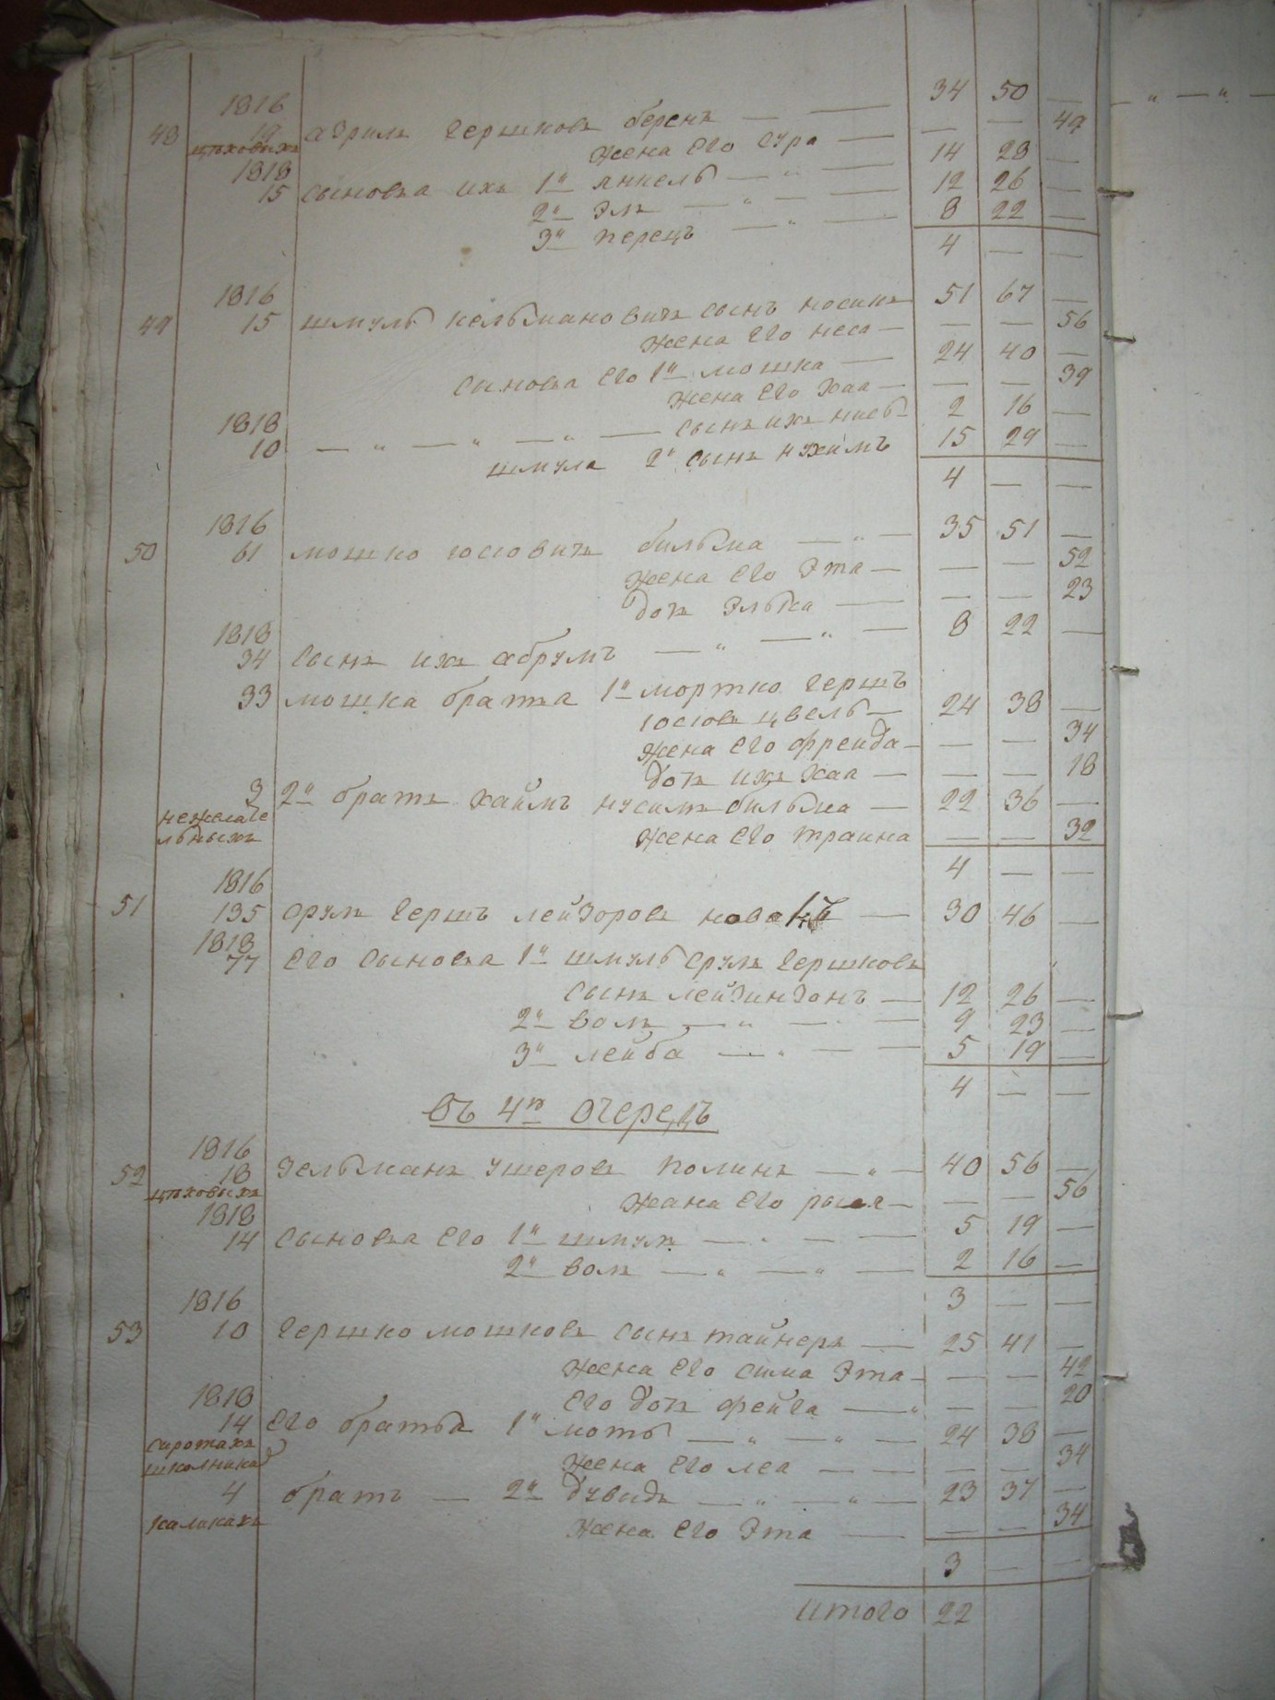 1816 34 50 —
48 19 азриль гершковъ беренъ — —
цѣховыхъ жена его сура — — — 49
1818 14 28 —
15 сыновья ихъ 1й янкель — " — 12 26 —
2й эль — " — 8 22 —
3й перецъ — " —
4 — —
1816
49 15 шмуль кельмановичъ сынъ носинъ 51 67 —
жена его неса — — — 56
сыновья его 1й мошка — 24 40 —
жена его хая — — — 39
1818 сынъ ихъ 2 16 —
10 — " — " — " —
шмуля 2й сынъ нухимъ 15 29 —
4 — —
1816
50 61 мошко юсiовичъ бильма — " — 35 51 —
жена его эта — — — 52
дочь элька — — — 23
1818
34 сынъ ихъ абрумъ — " — " — 8 22 —
33 мошка братья 1й мортко гершъ
юсiовъ цвель — 24 38 —
жена его фрейда — — — 34
дочь ихъ хая — — — 18
3 2й братъ хаймъ нусимъ бильма — 22 36 —
нежелате
льныхъ жена его траина — — 32
4 — —
1816
51 135 срул гершъ лейзоровъ — 30 46 —
1818
77 его сыновья 1й шмуль срул гершковъ
сынъ лейзинзонъ — 12 26 —
2й волъ — " — — 9 23 —
3й лейба — " — — 5 19 —
4 — —
въ 4й очередъ
1816
52 18 зельманъ ушеровъ полинъ — " — 40 56 —
цѣховыхъ жана его рыся — — — 56
1818
14 сыновья его 1й шмуль — " — — 5 19 —
2й волъ — " — " — 2 16 —
1816 3 — —
53 10 гершко мошковъ сынъ тайнеръ — 25 41 —
жена его сима эта — — — 42
1818 его дочь фейга — " — — 20
14 его братья 1й моть — " — " — 24 38 —
сиротахъ
школника жена его леа — — — — 34
4 братъ — 2й дувидъ — " — " — 23 37 —
калеками жена его эта — — — 34
3 — —
итого 22